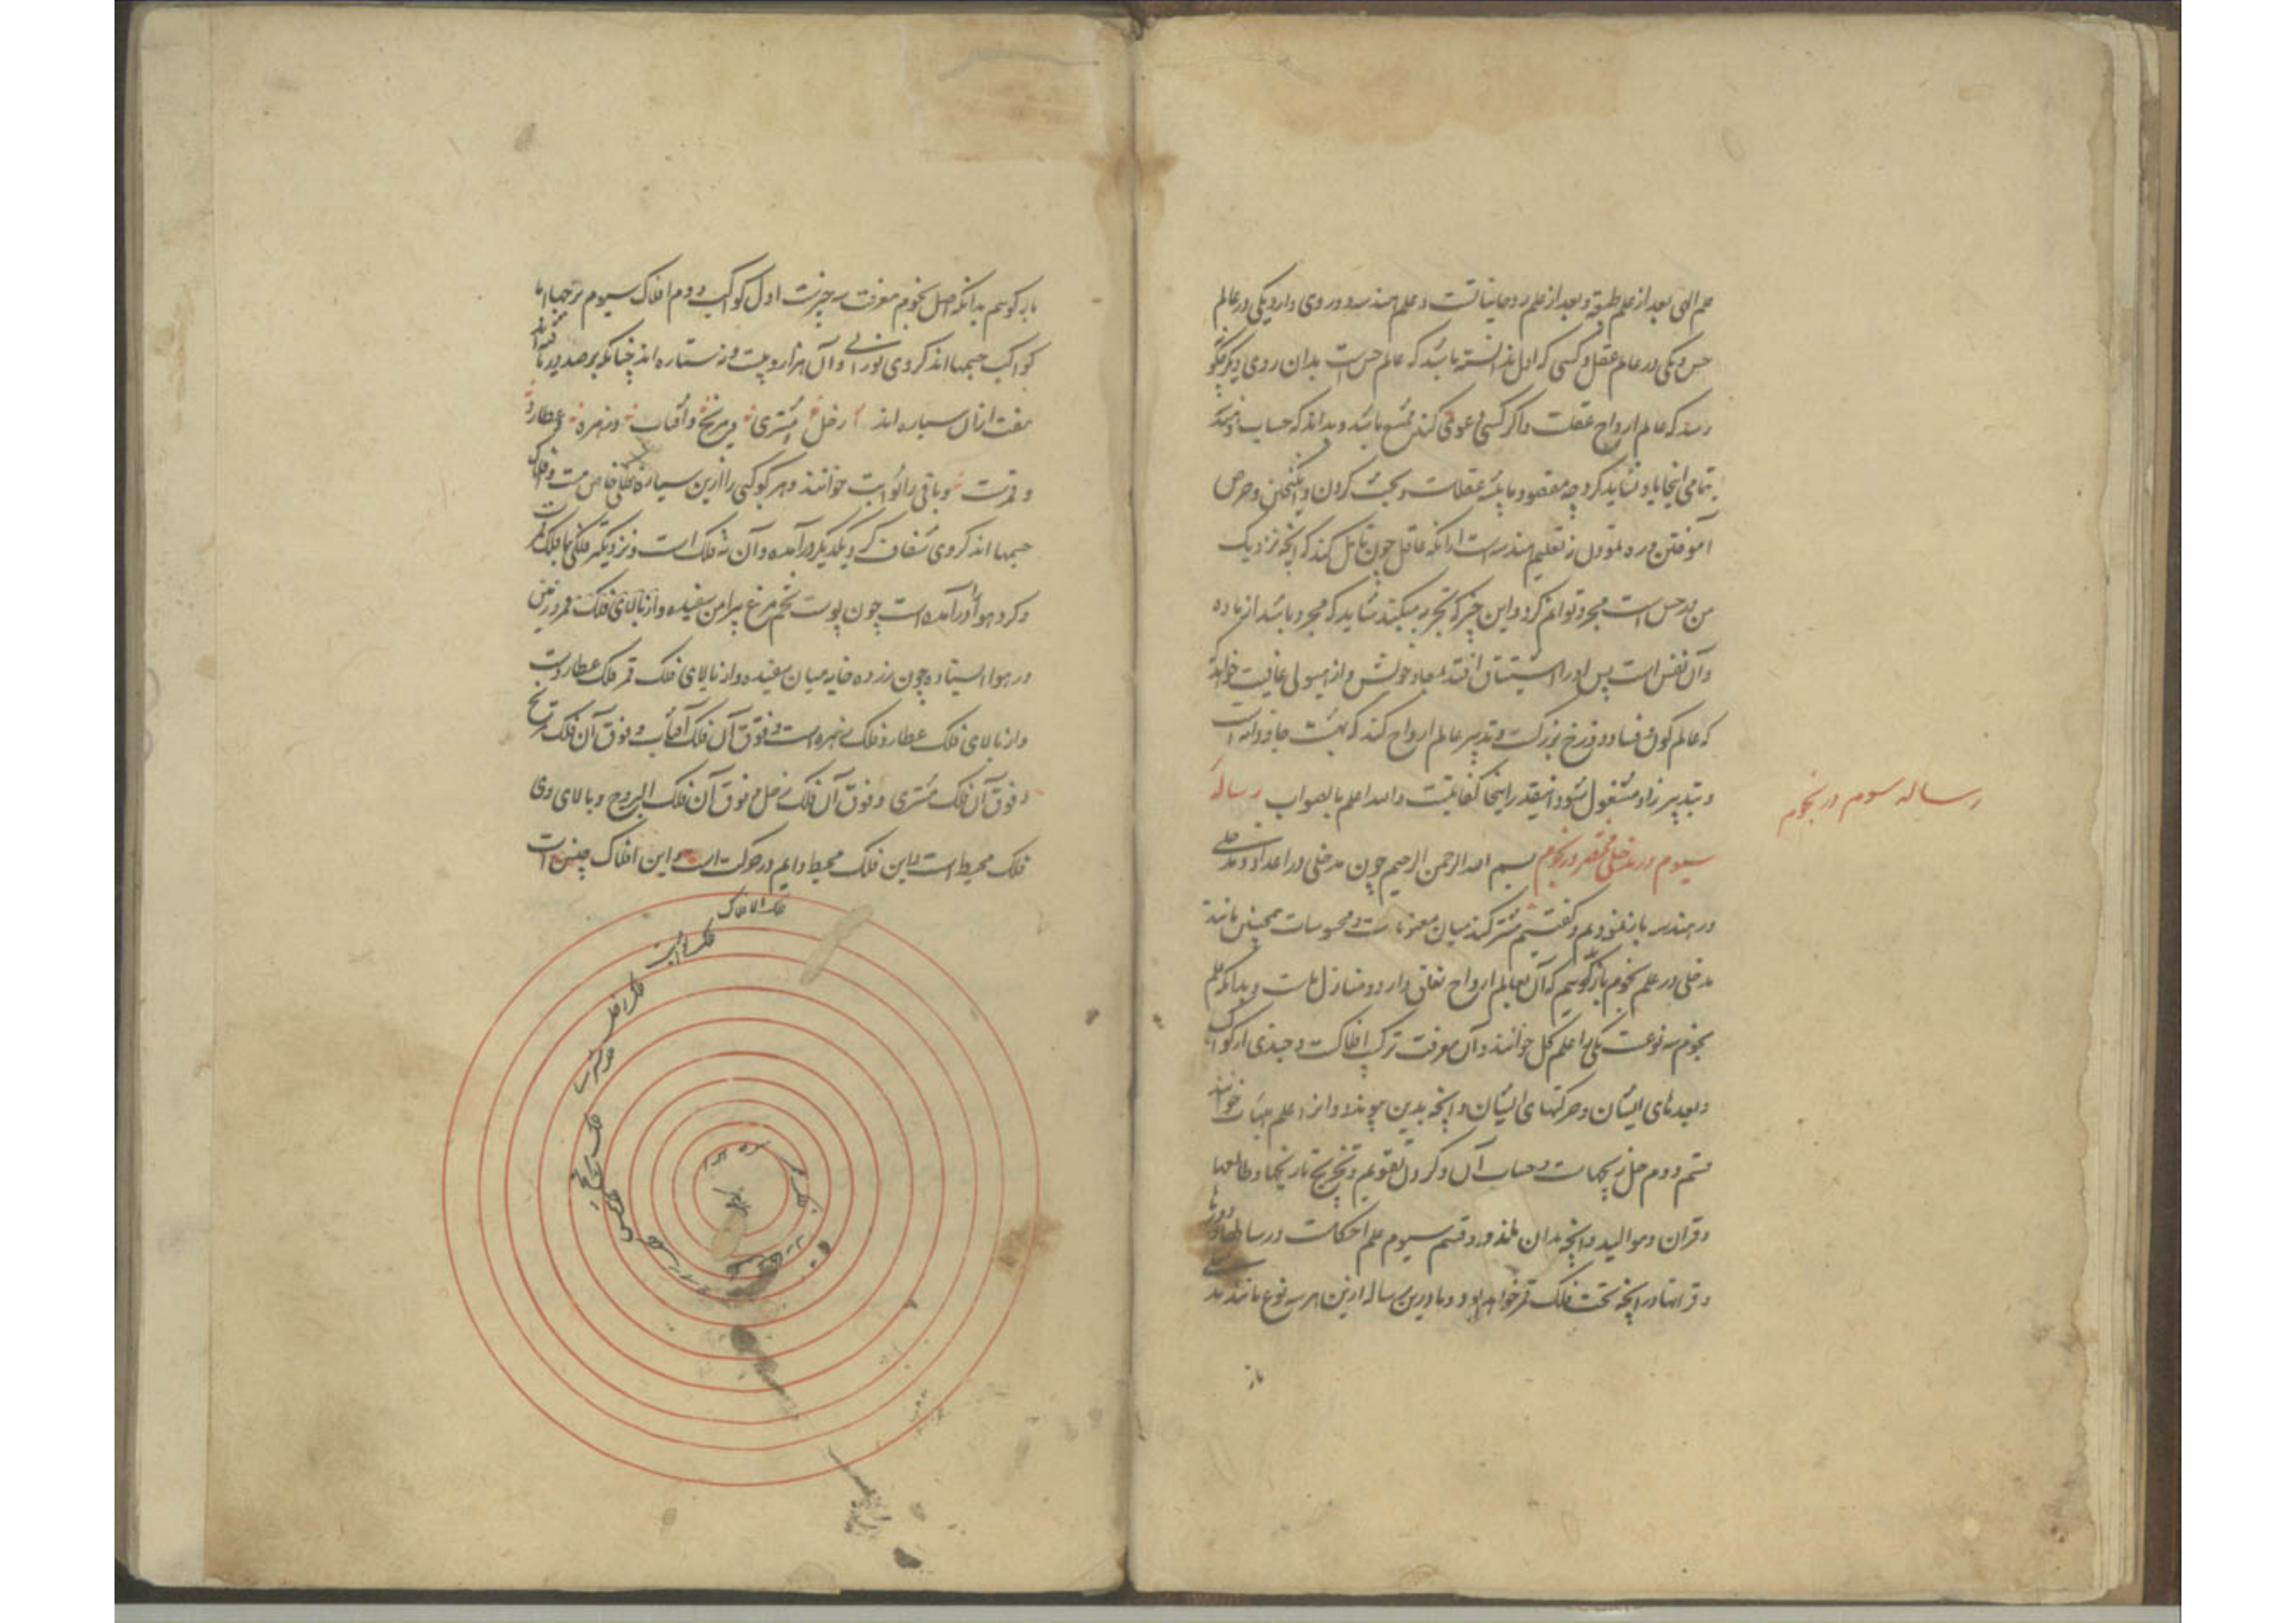 علم الهی بعد از علم طبیعة و بعد از علم روحانیاتست و علم هندسه دو روی دارد یکی در عالم
حس و یکی در عالم عقل و کسی که اول ندانسته باشد که عالم حس است بدان روی دیگر
رسد که عالم ارواح عقلست و اگر کسی دعوی کند باشد و بداند که حساب و هندسه
بتمامی اینجا یاد نشاید کرد چه مقصود ما عقلست و بحث کردن و وحرص
آموختن و ره نمودن نه تعلیم هندسه است از آنکه عاقل چون تأمل کند که آنچه نزدیک
من در حس است مجرد توانم کرد و این چیز که تجربه میکند شاید که مجرد باشد از ماده
و آن نفس است پس او را اشتیاق افتد بمعاد خویش و از هیولی عافیت خواهد
که عالم کون و فساد دوزخ بزرگست و تدبیر عالم ارواح کند که بهشت جاودانه است
و بتدبیر زاد مشغول شود و اینقدر اینجا کفایتست والله اعلم بالصواب رساله
سیوم در مدخل مختصر در نجوم بسم الله الرحمن الرحیم چون مدخلی در اعداد و مدخلی
در هندسه باز نمودیم و گفتیم مشترکند میان معقولات و محسوسات همچنین مانند
مدخلی در علم نجوم بازگوییم که آن بعالم ارواح تعلق دارد و منازل ماست و بدانکه علم
نجوم سه نوعست یکی را علم کل خوانند و آن معرفت ترکیب افلاکست و چندی از کواکب
و بعدهای ایشان و حرکتهای ایشان و آنچه بدین پیوندد و آنرا علم هیئات خوانند
قسم دوم حل زیجهاست و حساب آن و کردن تقویم و تخریج تاریخها و طالعها
و قران و موالید و آنچه بدان ماند و قسم سیوم علم احکامست در سالها و دورها
و قرانها و آنچه تحت فلک قمر خواهد بود و ما درین رساله ازین هر سه نوع مانند مدخلی
باز
رساله سوم در نجوم
باز گوییم بدانکه اصل نجوم معرفت سه چیزست اول کواکب دوم افلاک سیوم برجها اما
کواکب جسمها اند کروی نورانی و آن هزار و بیست و نه ستاره اند چنانکه برصد دریافته اند
هفت از آن سیاره اند زحل مشتری و مریخ و آفتاب و زهره و عطارد
و قمرست و باقی را ثوابت خوانند و هر کوکبی را ازین سیاره فلکی خاص است و افلاک
جسمها اند کروی شفاف گرد یکدیگر درآمده و آن نه فلک است و نزدیکتر فلکی با فلک قمرست
و گرد هوا درآمده است چون پوست تخم مرغ پیرامن سفیده و از بالای فلک قمر و زمین
در هوا ایستاده چون زرده خایه میان سفیده و از بالای فلک قمر فلک عطاردست
و از بالای فلک عطارد فلک زهره است و فوق آن فلک آفتاب و فوق آن فلک مریخ
و فوق آن فلک مشتری و فوق آن فلک زحل و فوق آن فلک البروج و بالای وی
فلک محیط است و این فلک محیط دایم در حرکت است و این افلاک چنین است
فلک الافلاک